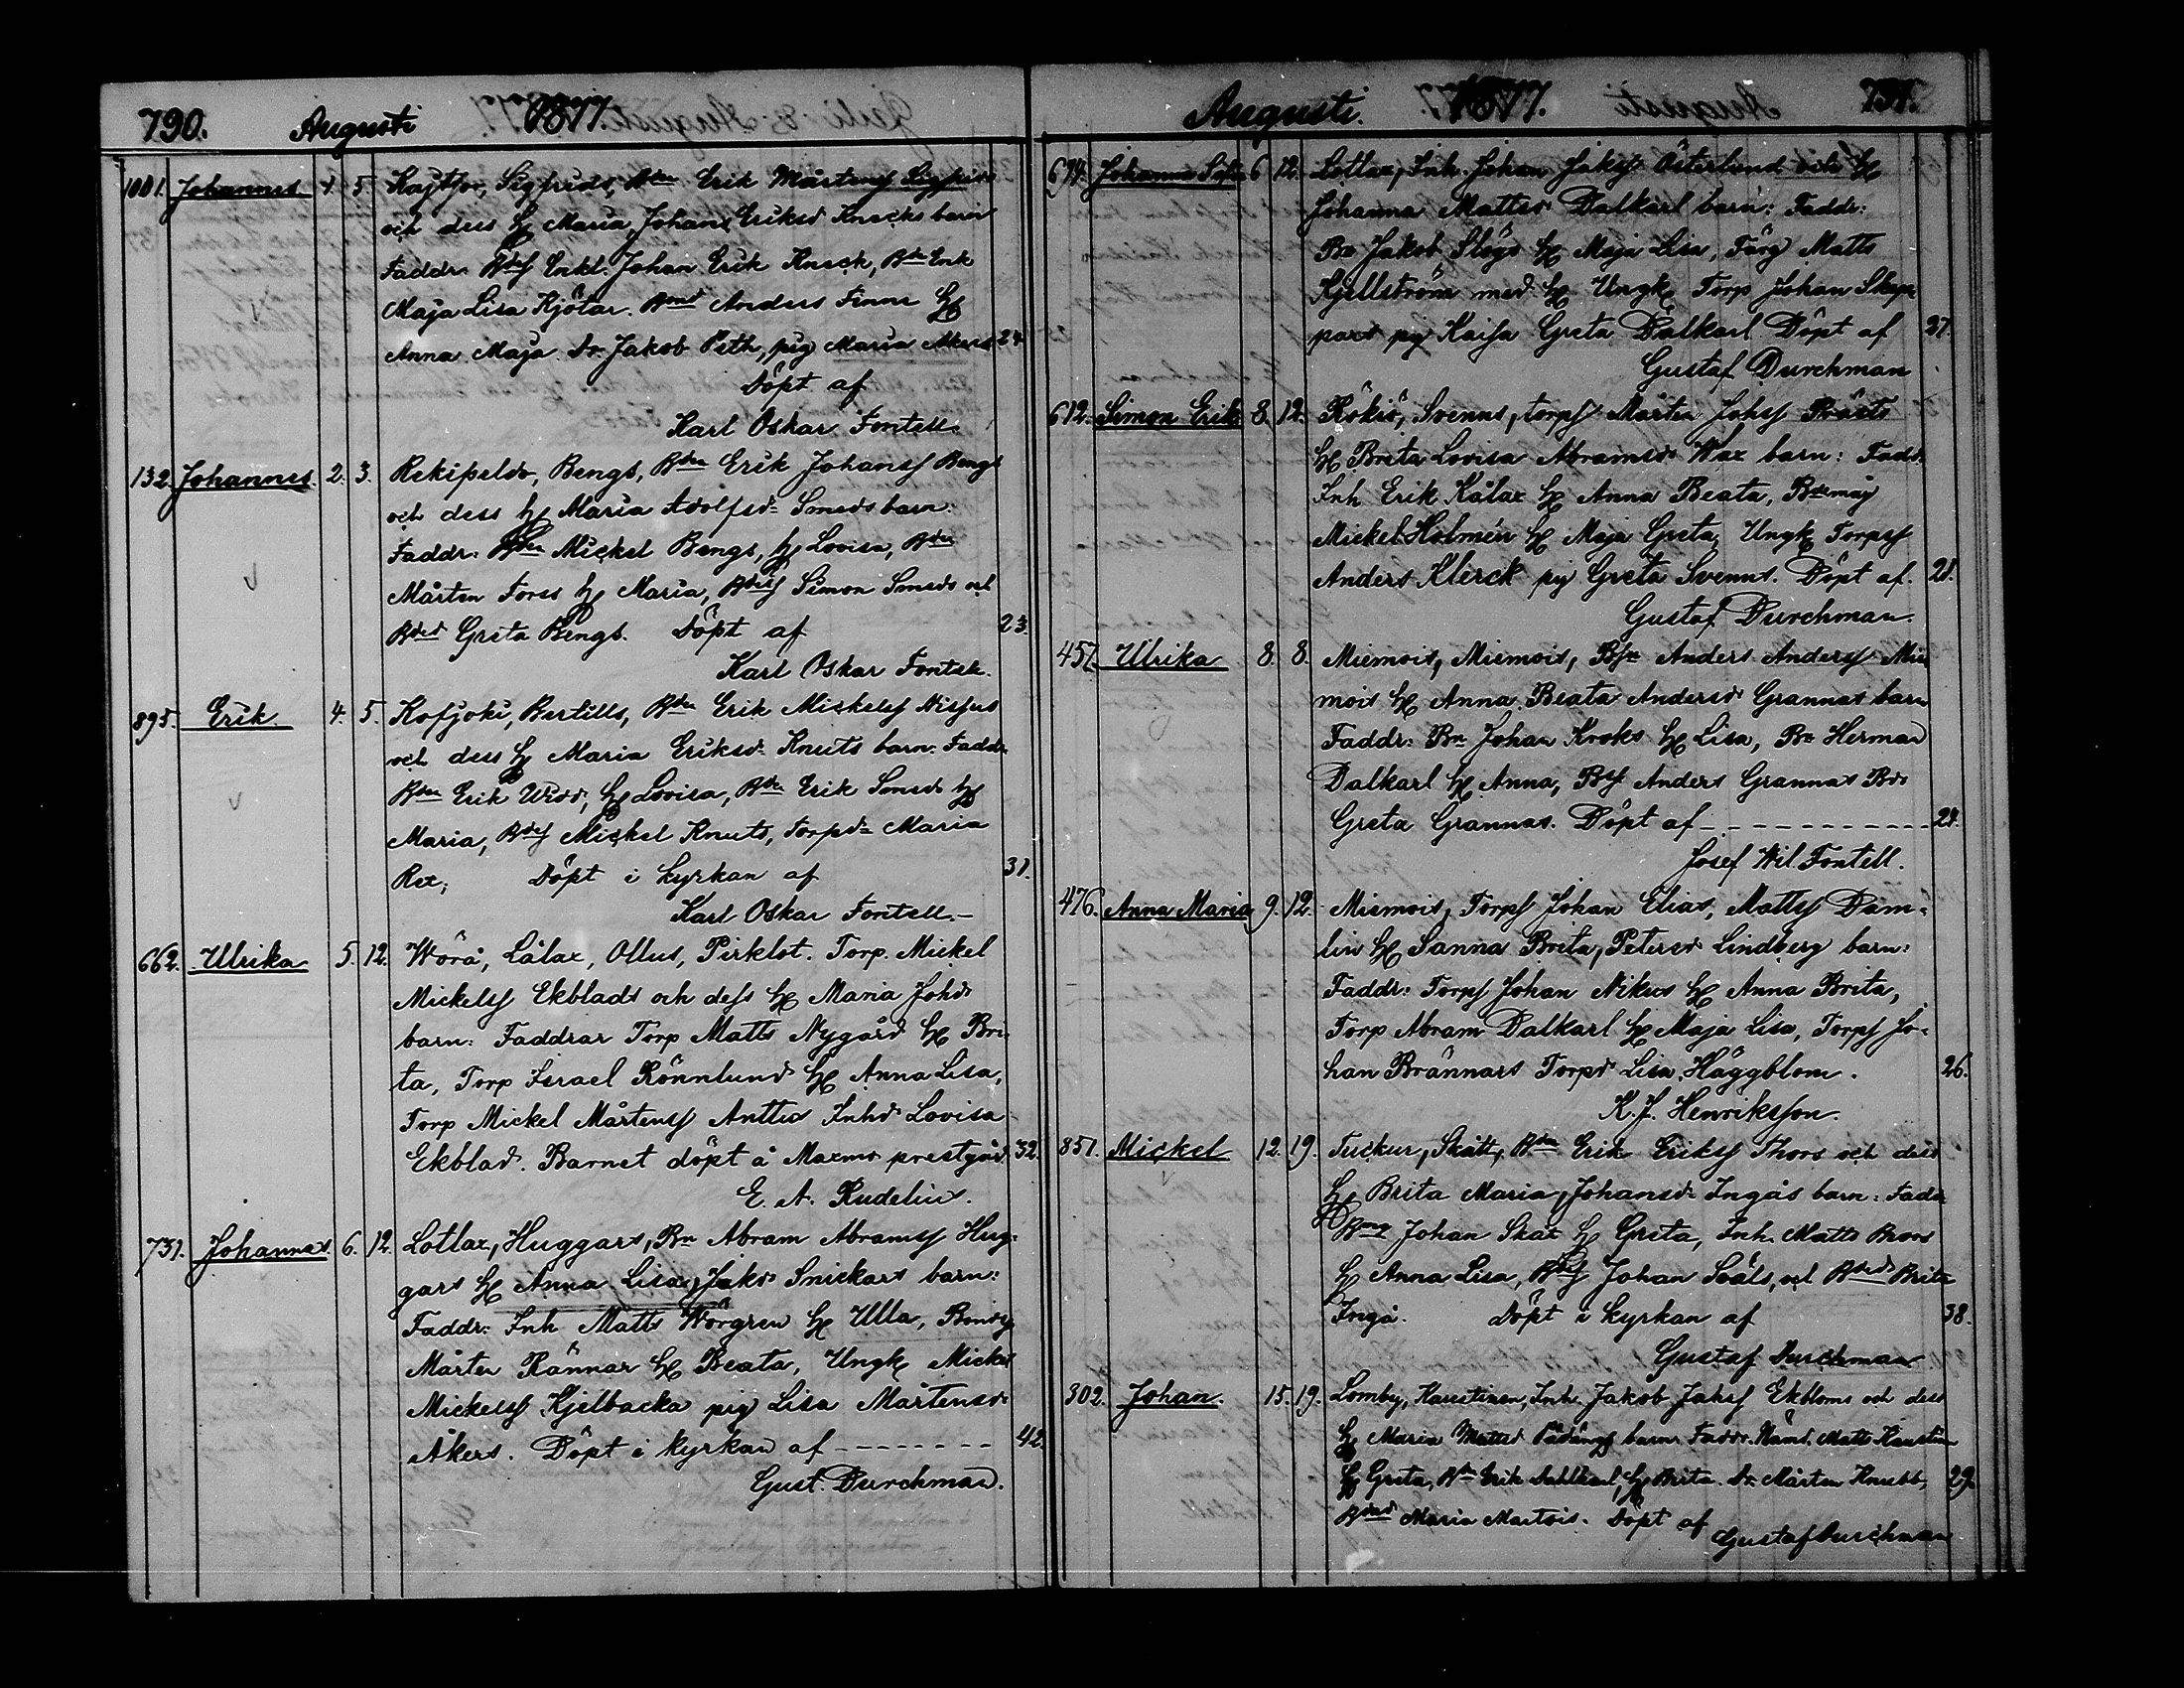 790. Augusti 1877.
1001. Johannes 1. 5. Kaytfor, Sigfrids, Bdn Erik Mårtens Sigfrids
och dess H Maria Johans Eriksd Knecks barn
Faddr. Enkl. Johan Erik Kneck, Enk
Maja Lisa Kjötar. Anders Finne H
Anna Maja Dr. Jakob Peth, pig Maria 24
Döpt af
Karl Oskar Fontell.
132. Johannes. 2. 3. Rekipeldo, Bengs, Bdn Erik Johans Bengs
och dess H Maria Adolfsd Smeds barn:
Faddr: Bdn Mickel Bengs, H Lovisa, Bdn
Mårten Forss H Maria, Simon Smeds och
Greta Bengs. Döpt af 23.
Karl Oskar Fontell.
895. Erik 4. 5. Kofjoki, Bertills, Bdn Erik Mickels Nissus
och dess H Maria Eriksd Knuts barn: Faddr
Bdn Erik H Lovisa, Bdn Erik Smeds H
Maria, Mickel Knuts, Torpd Maria
Rex; Döpt i kyrkan af 31.
Karl Oskar Fontell.-
662. Ulrika 5. 12. Wörå, Lålax, Ollus, Pirklot. Torp. Mickel
Mickels Ekblads och dess H Maria Johd
barn: Faddrar Torp Matts Nygård H Bri-
ta, Torp Israel Rönnlund H Anna Lisa,
Torp Mickel Mårtens Anttus Inhd Lovisa
Ekblad. Barnet döpt å Maxmo prestgård 32.
E. A. Rudelius.
731. Johannes. 6. 12. Lotlax, Huggars, Bn Abram Abrams Hug-
gars H Anna Lisa Jakd Snickars barn:
Faddr: Inh Matts Wörgren H Ulla,
Mårten Rännar H Beata, Ungk Mickel
Mickels Kjelbacka pig Lisa Mårtensd
Åkers. Döpt i kyrkan af - - - - - - - - 42
Gust. Durchman.
Augusti. 1877. 791.
674. Johanna 6 12. Lotlax, Inh. Johan Jaks Österlund och H
Johanna Mattsd Dalkarl barn: Faddr:
Bn Jakob Slögs H Maja Lisa, Färg Matts
Kjellström med H Ungk Torp Johan Skep-
pars pig Kaisa Greta Dalkarl Döpt af 27.
Gustaf Durchman
612. Simon Erik 8. 12. Rökiö, Svenns, torps Mårten Johs Prästs
H Brita Lovisa Abramsd Wax barn: Fadd.
Inh Erik Kålax H Anna Beata,
Mickel Holmén H Maja Greta, Ungk Torps
Anders Klerck pig Greta Svenns. Döpt af. 21.
Gustaf Durchman.
457. Ulrika 8. 8. Miemois, Miemois, Anders Anders Mie-
mois H Anna Beata Andersd Grannas barn
Faddr: Bn Johan Kroks H Lisa, Bn Herman
Dalkarl H Anna, Anders Grannas Bd
Greta Grannas. Döpt af - - - - - - - - - - - 24.
Josef Wil. Fontell.
476. Anna Maria 9. 12. Miemois, Torps Johan Elias, Matts Dam-
lin H Sanna Brita, Petersd Lindberg barn:
Faddr: Torps Johan Nikus H Anna Brita,
Torp Abram Dalkarl H Maja Lisa, Torps Jo-
han Brännars Torpd Lisa Häggblom. 26.
K. J. Henriksson.
851. Mickel 12. 19. Tuckur, Skått, Bdn Erik Eriks Thors och dess
H Brita Maria, Johansd Ingås barn: Faddr
Johan Skax H Greta, Inh. Matts Brors
H Anna Lisa, Johan Svåls, och Brita
Ingå. Döpt i kyrkan af 38.
Gustaf Durchman
302. Johan. 15. 19. Lomby, Kaustinen, Inh. Jakob Jakss Ekbloms och dess
H Maria Mattsd barn. Faddr. Matts
H Greta, Erik H Brita. Dr. Mårten Knubb, 29.
Maria Martois. Döpt af Gustaf Durchman